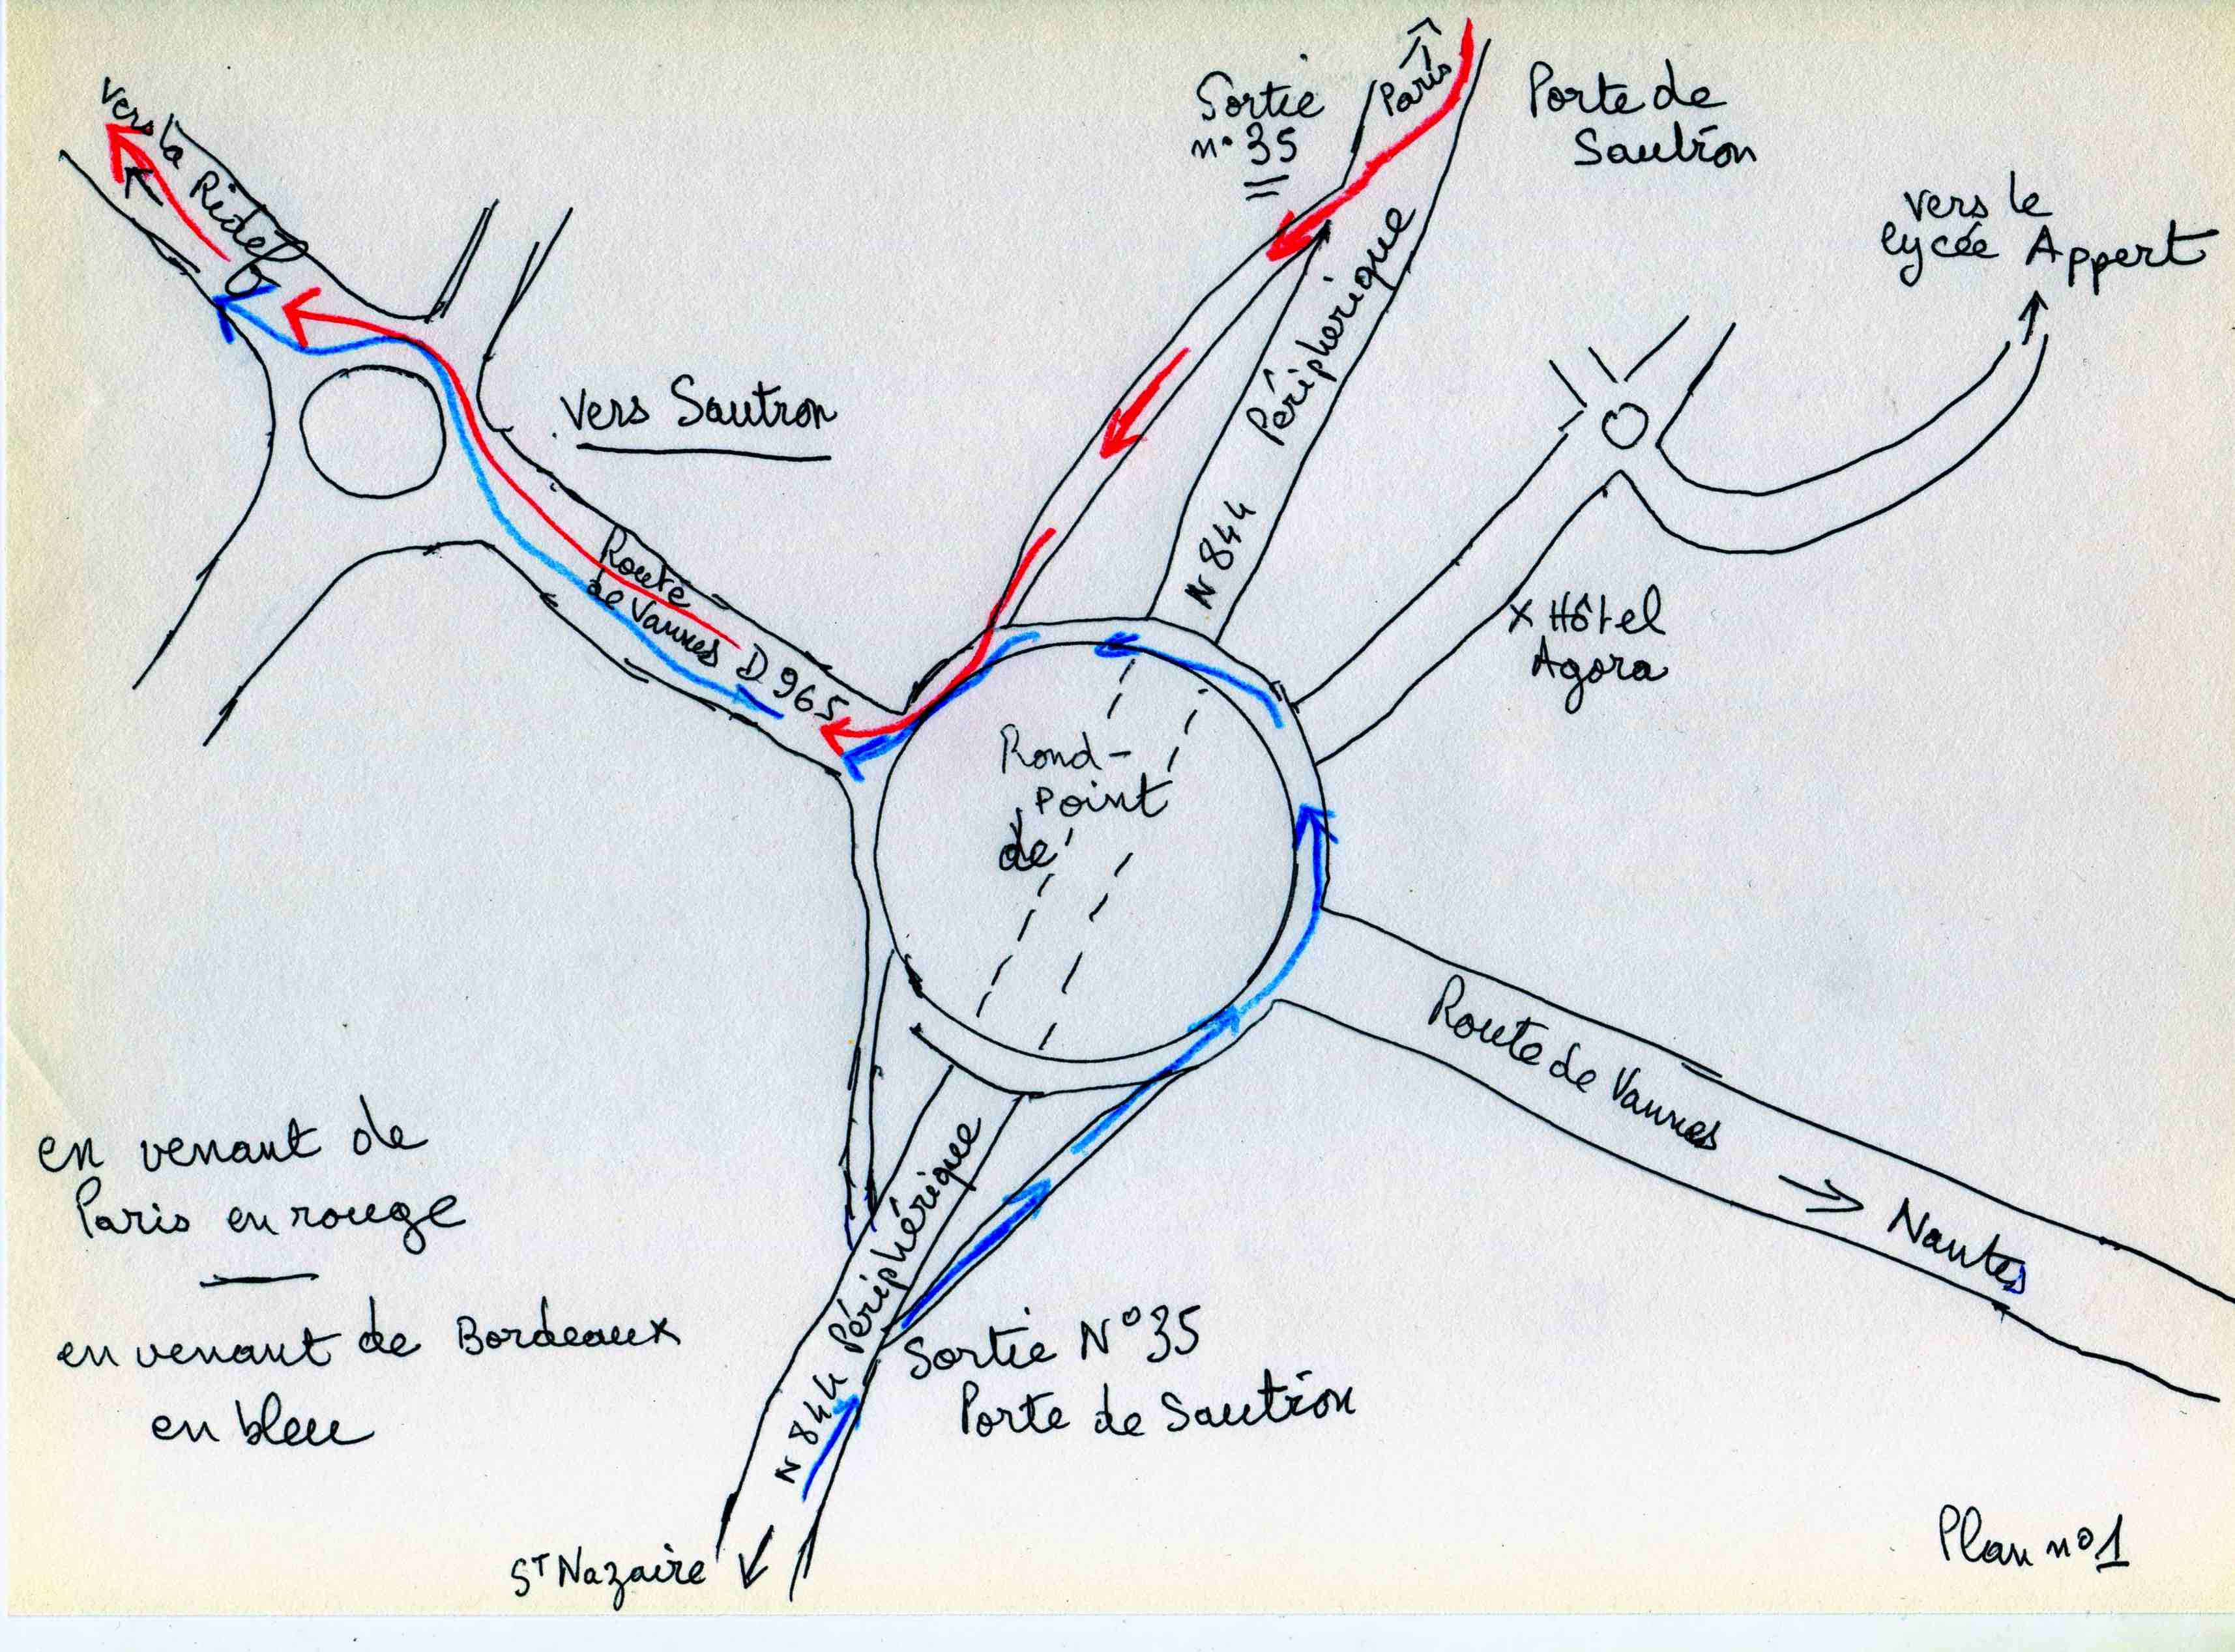 Sortie
n° 35
Paris
Porte de
Sautron
vers la Ridel
vers le
lycée Appert
N 844 Périphérique
vers Sautron
Route
de Vannes D 965
X Hôtel
Agora
Rond-
Point
de
Route de Vannes → Nantes
en venant de
Paris en rouge
en venant de Bordeaux
en bleu
N 844 Périphérique
Sortie N° 35
Porte de Sautron
ST Nazaire
Plan n° 1